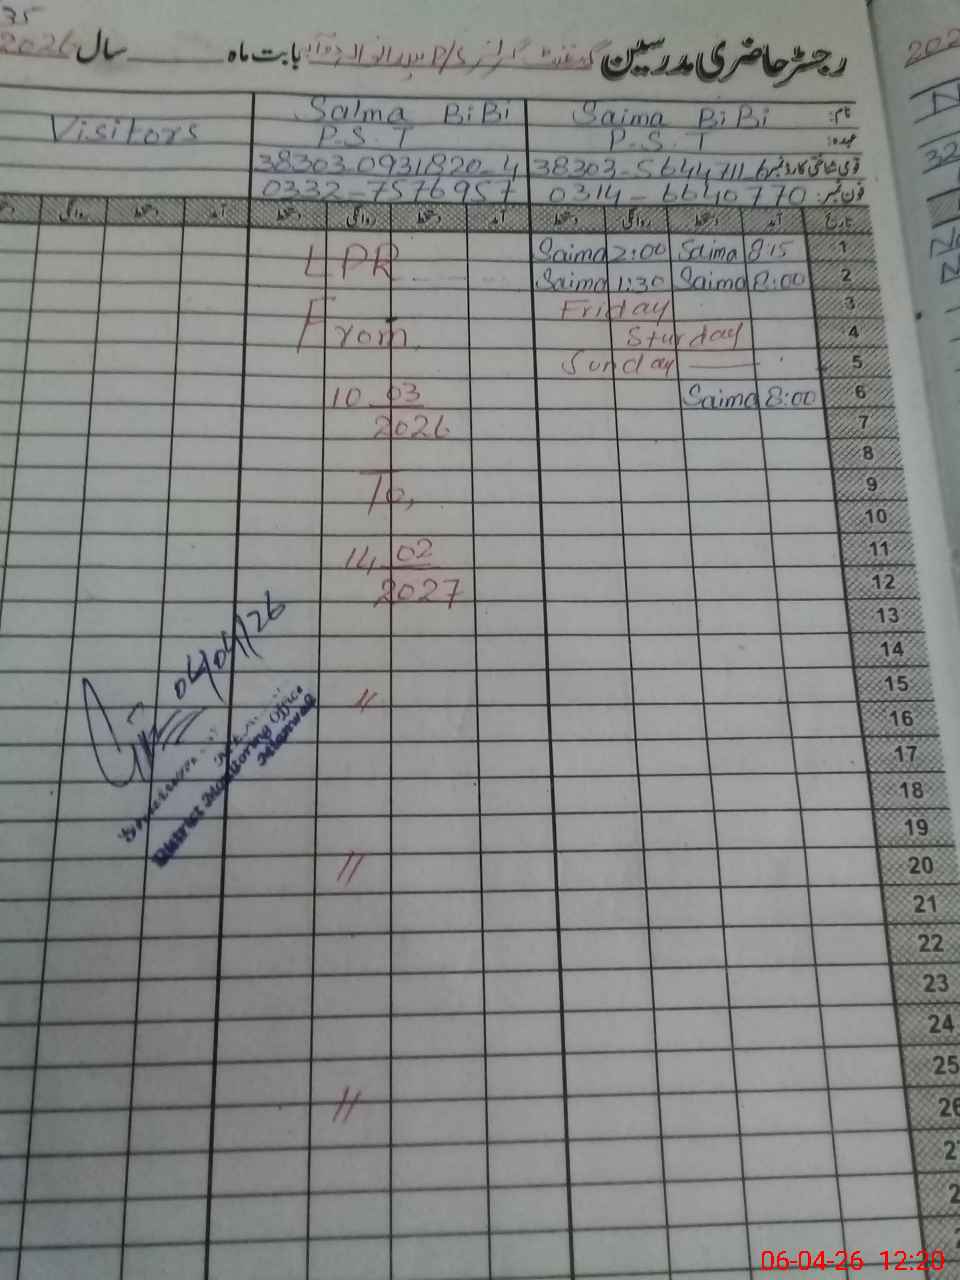 35
رجسٹر حاضری مدرسین گورنمنٹ گرلز P/S بابت ماہ سال 2026
نام: Saima BiBi Salma BiBi
عہدہ: P.S.T P.S.T Visitors
قومی شناختی کارڈ نمبر 38303-5644711-6 38303-0931820-4
فون نمبر: 0314-6640770 0332-7576957
تاریخ آمد دستخط روانگی دستخط آمد دستخط روانگی دستخط آمد دستخط روانگی دستخط
1 8:15 Saima 2:00 Saima
LPR
2 8:00 Saima 1:30 Saima
3 Friday
From,
4 Sturday
5 Sunday
6 8:00 Saima
10 03
7
2026
8
9
To,
10
11
14 02
12
2027
13
04/04/26
14
15
〃
16
17
District Monitoring Office
Mianwali
18
19
20
〃
21
22
23
24
25
26
〃
06-04-26 12:20